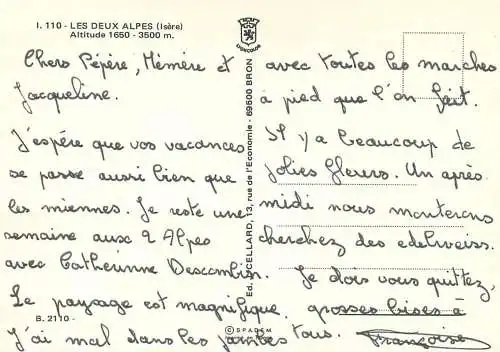 I. 110 - LES DEUX ALPES (Isère)
Altitude 1650 - 3500 m.
Chers Pépère, Mémère et
Jacqueline.
J'espére que vos vacances
se passe aussi bien que
les miennes. Je reste une
semaine aux 2 Alpes
avec Catherinne Descombin.
Le paysage est magnifique.
J'ai mal dans les jambes
B. 2110 -
Ed. CELLARD, 13, rue de l'Economie - 69500 BRON
© SPADEM
avec toutes les marches
à pied que l'on fait.
Il y a beaucoup de
jolies fleurs. Un après
midi nous monterons
cherchez des edelweiss.
Je dois vous quittez,
grosses bises à
tous.
Françoise